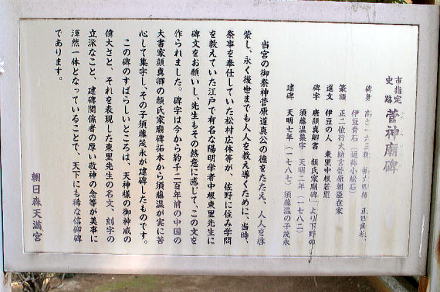 市指定
史跡
菅神廟碑
伊豆青石
篆額 正二位
撰文 伊豆の人 東里中根若思
碑字 唐顔真卿書 顔氏家廟碑
須藤温集字 天明二年(一七八二)
建碑 天明七年(一七八七) 須藤温の子茂永
当宮の御祭神菅原道真公の徳をたたえ、人人を
栄し、永く後世までも人人を教え導くために、当時、
祭事を奉仕していた松村広休等が、佐野に住み学問
を教えていた江戸で有名な陽明学者中根東里先生に
碑文をお願いし、先生もその熱意に感じて、この文を
作られました。碑字は今から約千二百年前の中国の
大書家顔真卿の顔氏家廟碑拓本から須藤温が実に苦
心して集字し、その子須藤茂永が建碑したものです。
この碑のすばらしいところは、天神様の御神威の
偉大さと、それを表現した東里先生の名文、刻字の
立派なこと、建碑関係者の厚い敬神の念等が美事に
渾然一体となっていることで、天下にも稀な信仰碑
であります。
朝日森天満宮